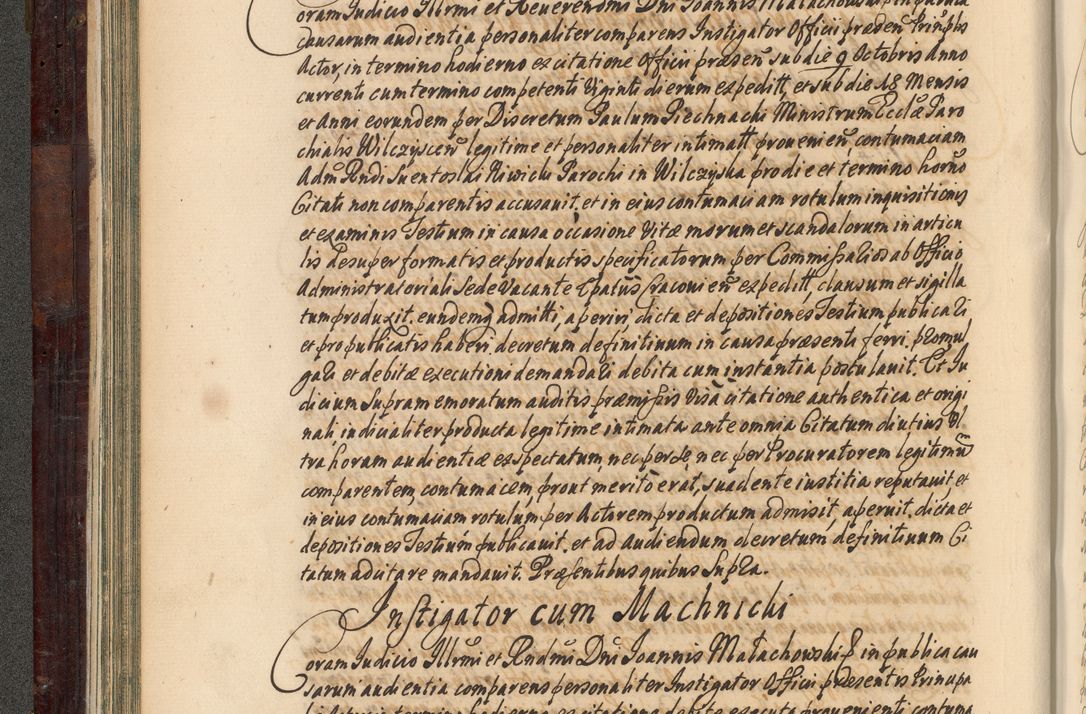 oram Judicio Illrmi et Reuerendmi Dni Joannis Małachowski in publica
causarum audientia personaliter comparens Instigator Officii præsen Prinpls
Actor, in termino hodierno ex citatione Officii præsen sub die 9 Octobris Anno
currenti cum termino competenti Viginti dierum expeditt, et sub die 18 Mensis
et Anni eorundem per Discretum Paulum Piechnachi Ministrum Ecclæ Paro
chialis Wilczyscen legitime et personaliter intimatt prouenien contumaciam
Adm Rndi Suentoslai Parochi in Wilczyska pro die et termino horno
Citati non comparentis accusauit, et in eius contumaciam rotulum inquisitionis
et examinis Testium in causa occasione Vitæ morum et scandalorum in articu
lis desuper formatis et productis specificatorum per Commissalios ab Officio
Administratoriali Sede Vacante Epatus Cracouien expeditt, clausum et sigilla
tum produxit. eundemq admitti, aperiri, dicta et depositiones Testium publicari
et pro publicatis haberi, decretum definitiuum in causa præsenti ferri, promul
gari et debitæ executioni demandari debita cum instantia postulauit. Et Ju
dicium Supramemoratum auditis præmissis visa citatione authentica et origi
nali, iudicialiter producta legitime intimata ante omnia Citatum diutius Vl
tra horam audientiæ expectatum, nec per se, nec per Procuratorem legitimu
comparentem, contumacem, prout merito erat, suadente iustitia reputauit, et
in eius contumaciam rotulum per Actorem productum admisit, aperuit, dicta et
depositiones Testium publicauit, et ad audiendum decretum definitiuum Ci
tatum adcitare mandauit. Præsentibus quibus Supra.
Instigator cum Machnicki
Coram Judicio Illrmi et Rndmi Dni Joannis Małachowski in publica cau
sarum audientia comparens personaliter Instigator Officii præsentis Principa